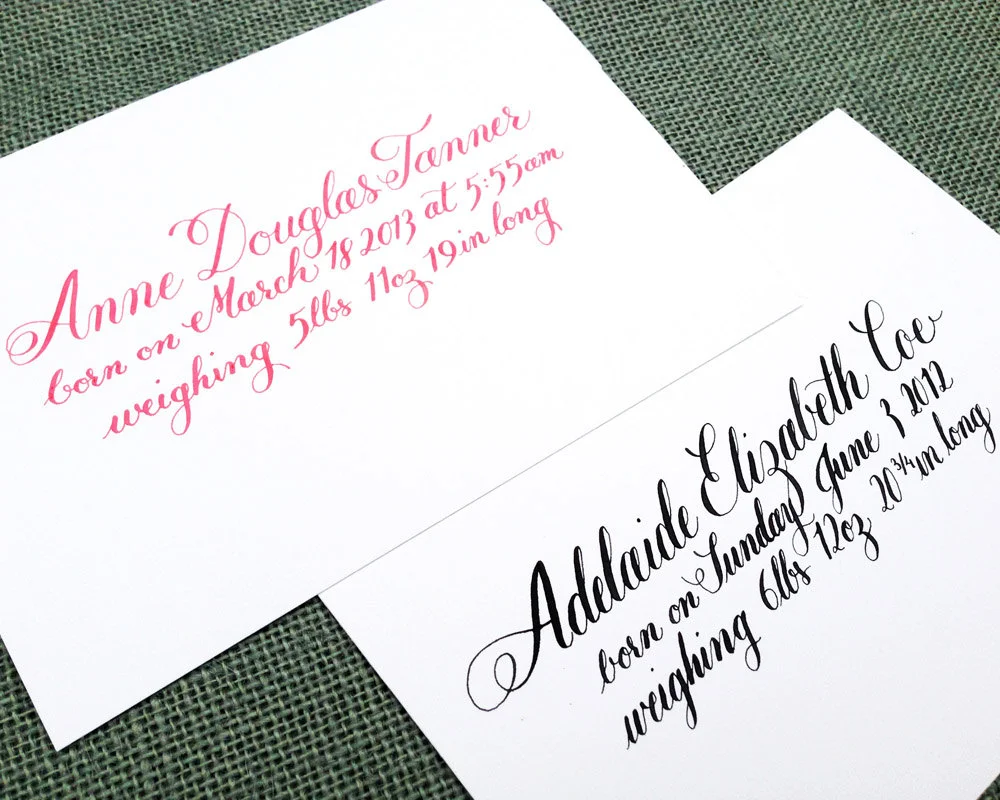 Anne Douglas Tanner
born on March 18 2013 at 5:55am
weighing 5lbs 11oz 19in long
Adelaide Elizabeth Coe
born on Sunday June 3 2012
weighing 6lbs 12oz 20 3/4 in long